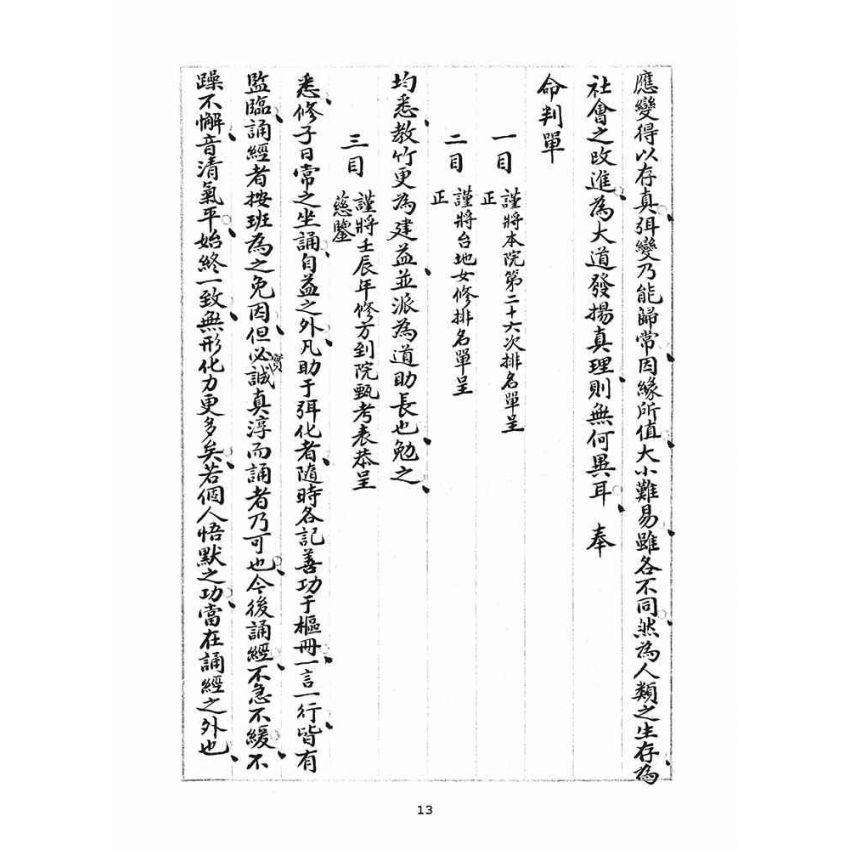 應變得以存真弭變乃能歸常因緣所值大小難易雖各不同然為人類之生存為
社會之改進為大道發揚真理則無何異耳 奉
命判單
一目 謹將本院第二十六次排名單呈
正
二目 謹將台地女修排名單呈
正
均悉教竹更為建益並派為道助長也勉之
三目 謹將壬辰年修方到院甄考表恭呈
慈鑒
悉修子日常之坐誦自益之外凡助于弭化者隨時各記善功于樞冊一言一行皆有
監臨誦經者按班為之免因但必實誠真淳而誦者乃可也今後誦經不急不緩不
躁不懈音清氣平始終一致無形化力更多矣若個人悟默之功當在誦經之外也
13